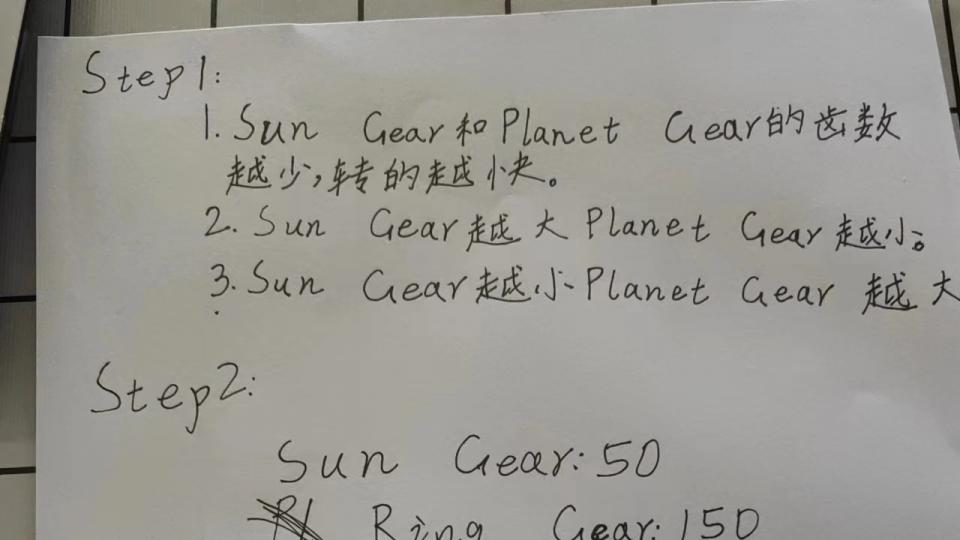 Step1:
1. Sun Gear和Planet Gear的齿数
越少,转的越快。
2. Sun Gear越大Planet Gear越小。
3. Sun Gear越小Planet Gear越大
Step2:
Sun Gear:50
Ring Gear:150